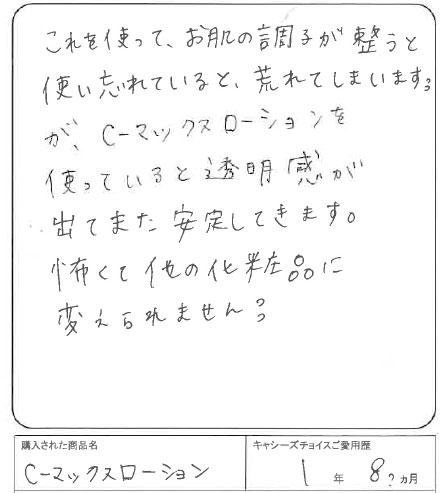 これを使って、お肌の調子が整うと
使い忘れていると、荒れてしまいます。
が、C-マックスローションを
使っていると透明感が
出てまた安定してきます。
怖くて他の化粧品に
変えられません?
購入された商品名
C-マックスローション
キャシーズチョイスご愛用歴
1年 8?ヵ月